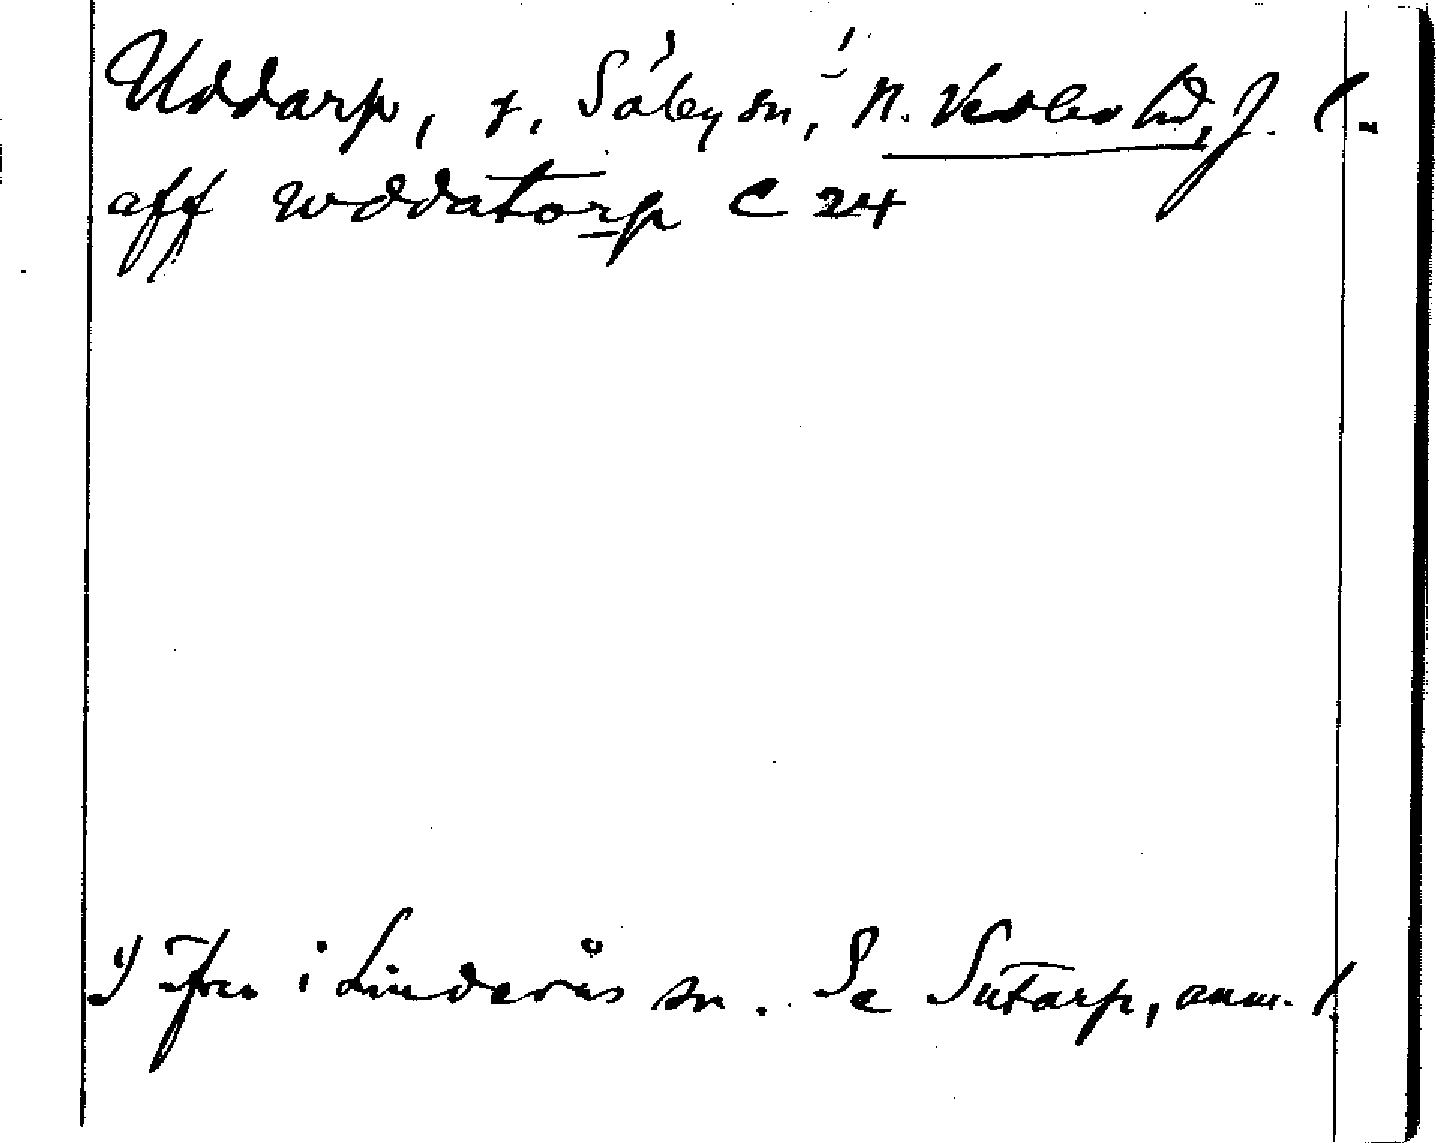 Uddarp, t. Säby sn,¹ N. Vedbo hd, J. l.
aff wddatorp C 24
¹) Tfn i Linderås sn. Se Sutarp, anm. 1.